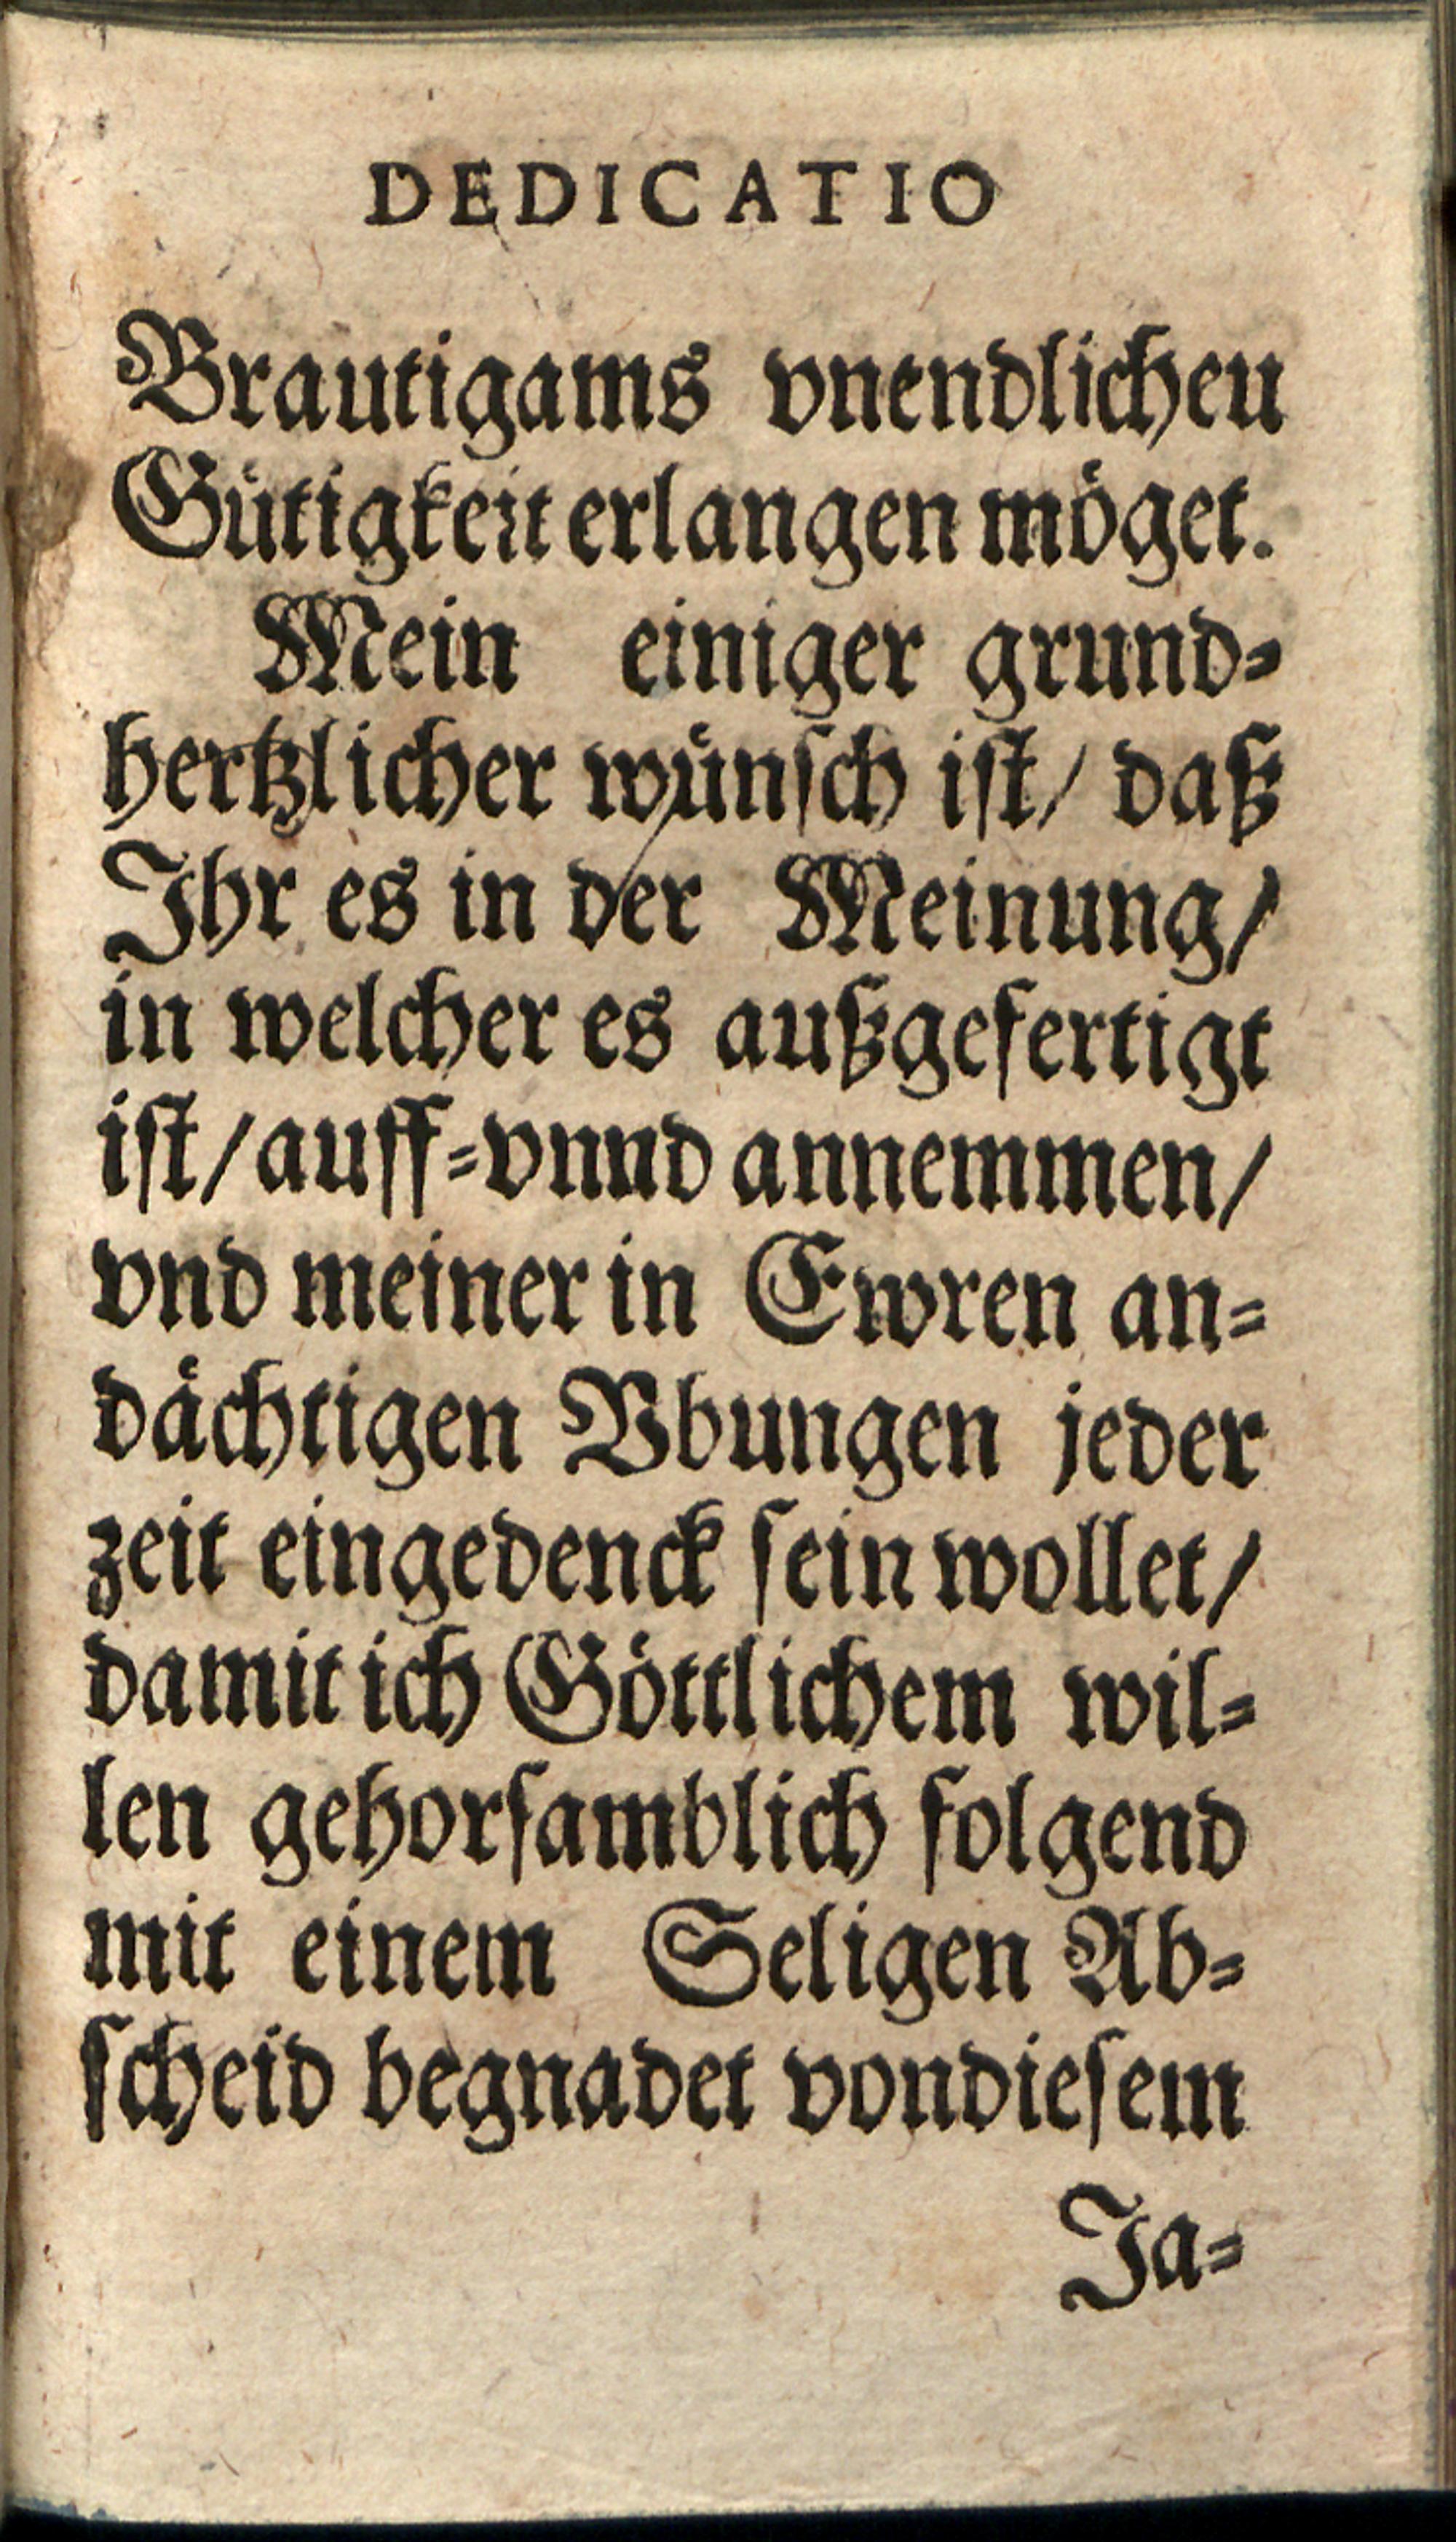 DEDICATIO
Brautigams vnendlicheu
Gütigkeit erlangen möget.
Mein einiger grund⸗
hertzlicher wünsch ist/ daß
Ihr es in der Meinung/
in welcher es außgefertigt
ist/ auff⸗vnnd annemmen/
vnd meiner in Ewren an⸗
dächtigen Vbungen jeder
zeit eingedenck sein wollet/
damit ich Göttlichem wil⸗
len gehorsamblich folgend
mit einem Seligen Ab⸗
scheid begnadet vondiesem
Ja⸗